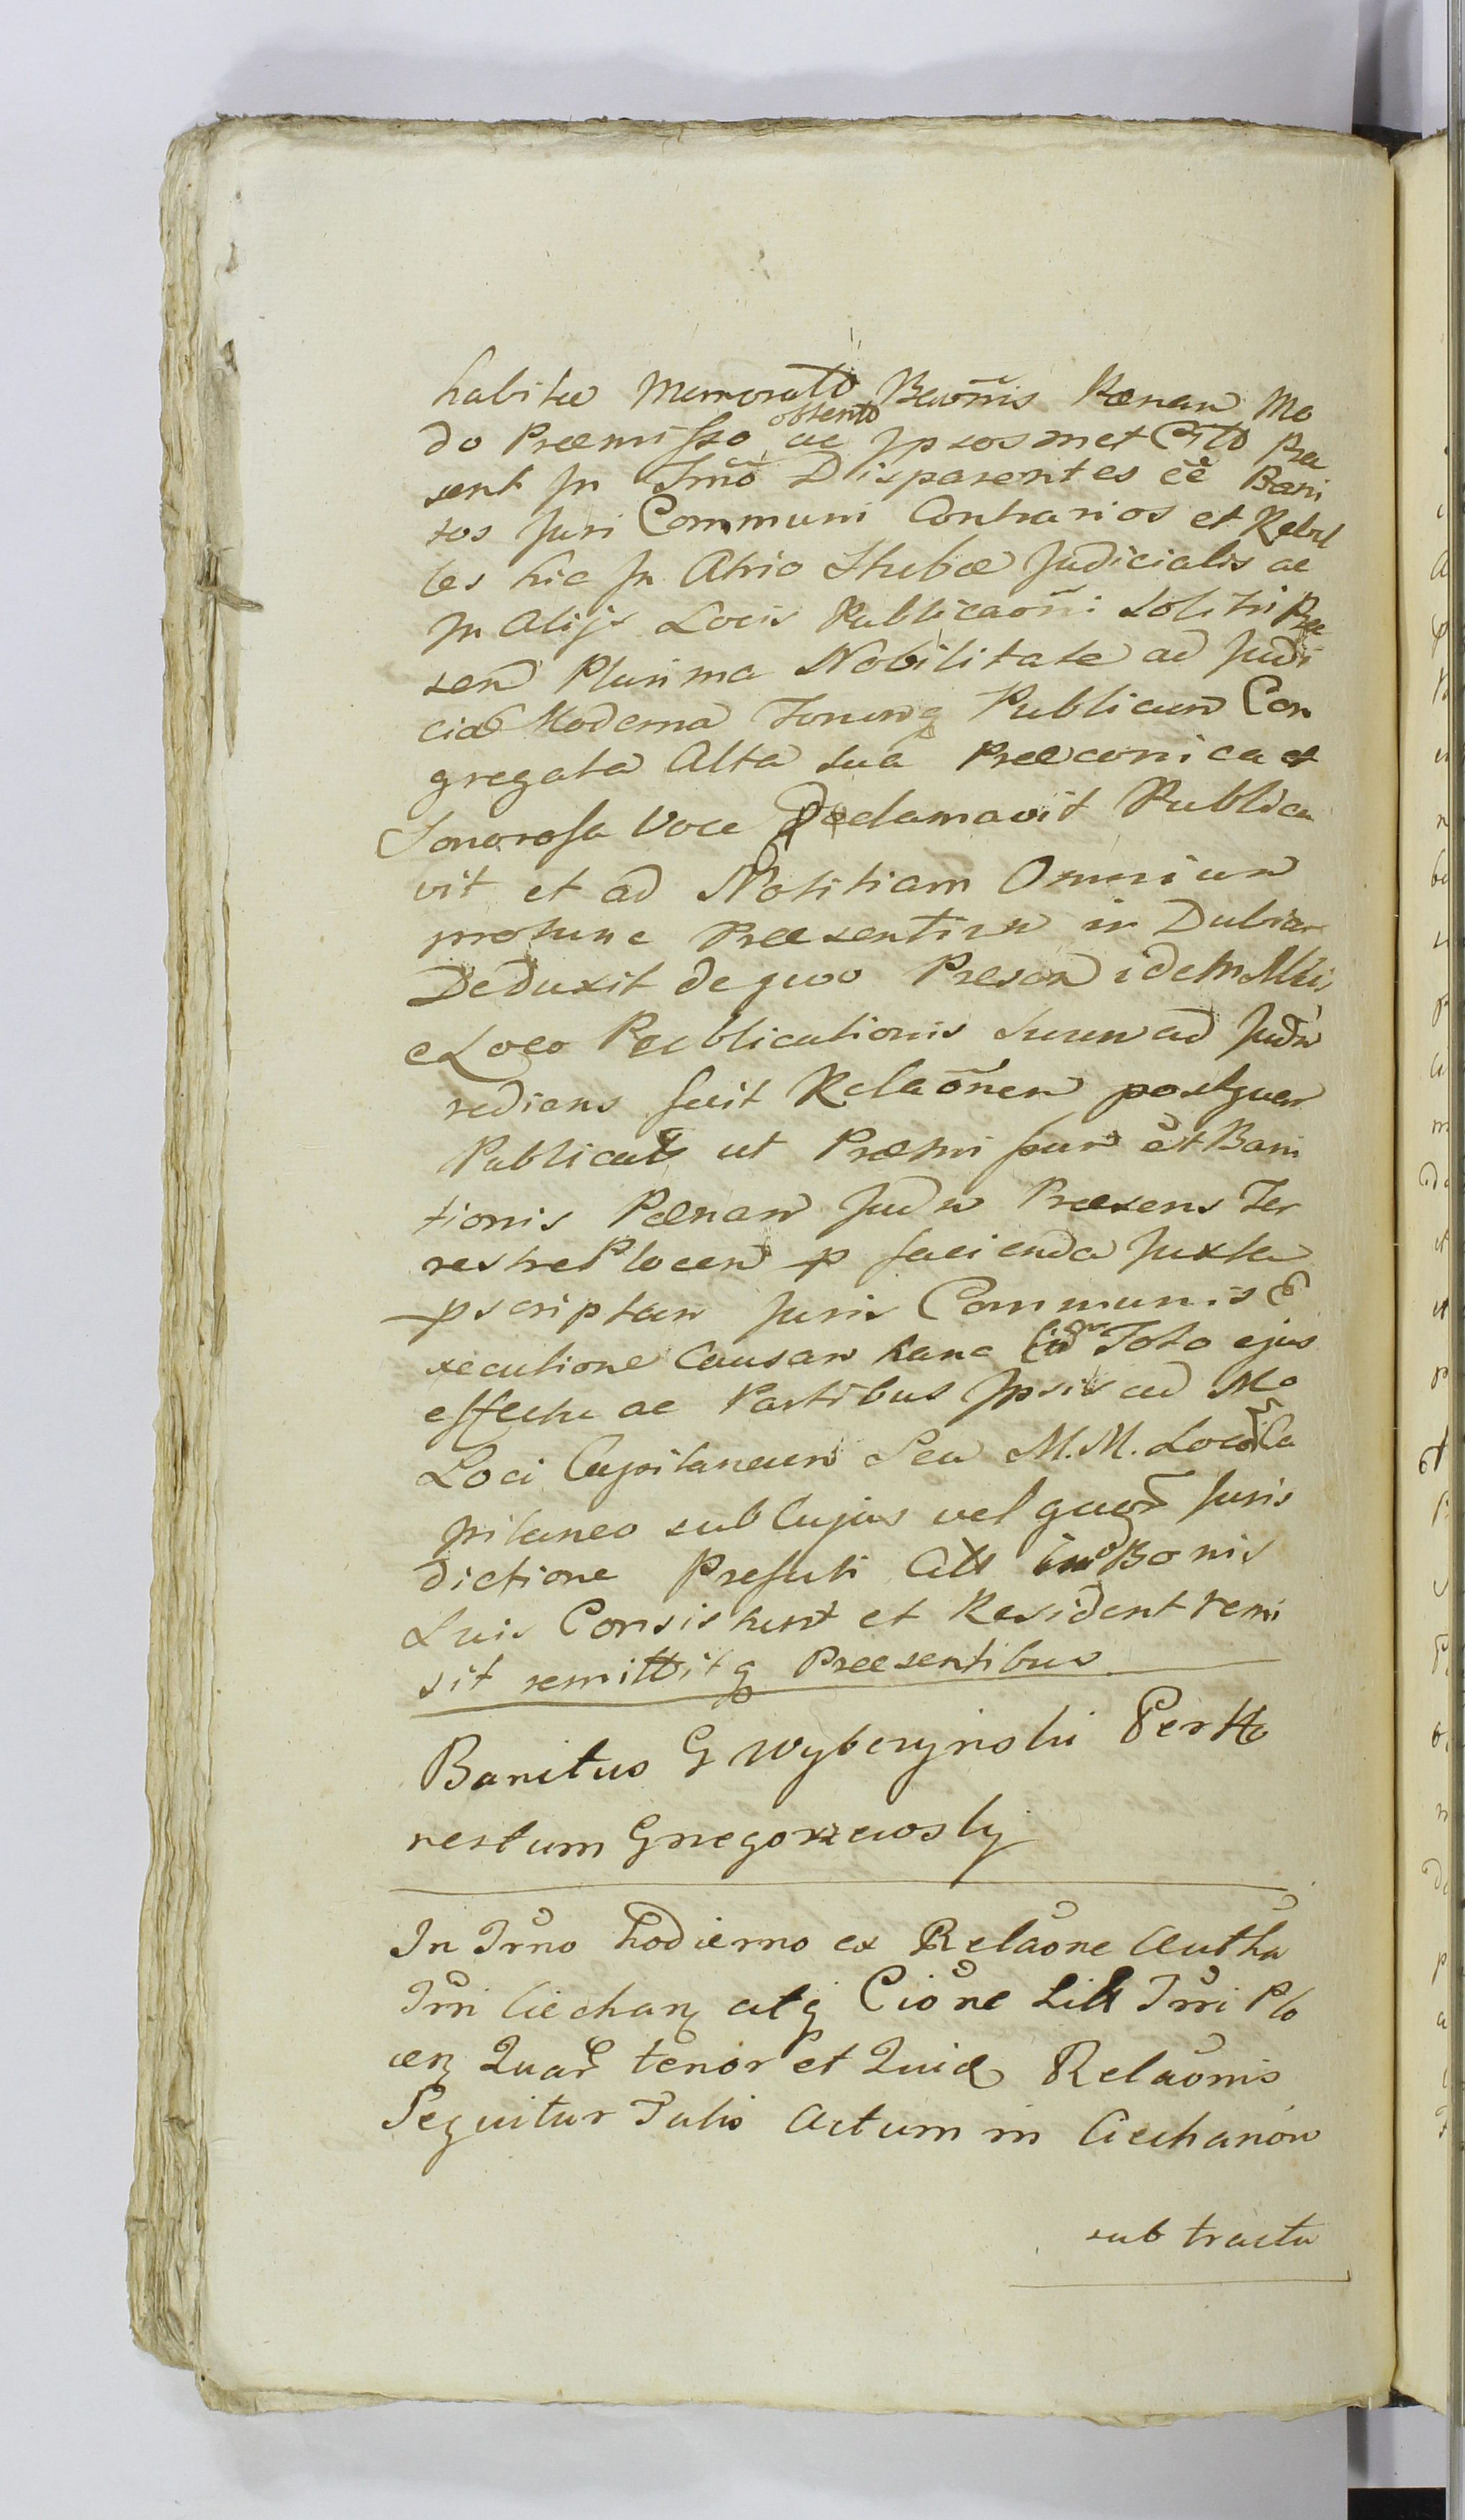 habitæ Memorato Bañoñis Pænam Mo
obtento
do Præmisso ac Ipsosmet Citto Præ
sent In Trmõ Disparentes eẽ Bani
tos Juri Communi Contrarios et Rebel
les hic In Atrio Stubæ Judicialis ac
In Alijs Locis Publicaoñi Solitis Præ
sen Plurima Nobilitate ad Judi
cia Moderna Forumq Publicum Con
gregata Alta sua Præconica et
Sonorosa Voce Declamavit Publica
vit et ad Notitiam Omnium
protunc Præsentium in Dubiam
Deduxit de quo Præson idem Mlis
e Loco Publicationis suum ad Judm
rediens fecit Relaõnem postquam
Publicata ut Præmissum est Bani
tionis Pænam Judm Præsens Ter
restre Plocen p facienda Juxta
pscriptum Juris Communis E
xecutione Causam hanc Cum Toto ejus
effectu ac Partibus Ipsis ad M
Loci Capitaneum Seu M. M. Locor Ca
pitaneo sub Cujus vel quor Juris
dictione Prefati Citt in Bonis
Suis Consistunt et Resident remi
sit remittitq Præsentibus
Banitus G Wybczynski Per Ho
nestum Gregorzewsky
In Trno hodierno ex Relaõne Autha
Trri Ciechan atq Ciõne Litt Trri Plo
cen Quar tenor et Quid Relaõnis
Sequitur Talis Actum in Ciechanow
sub tractu